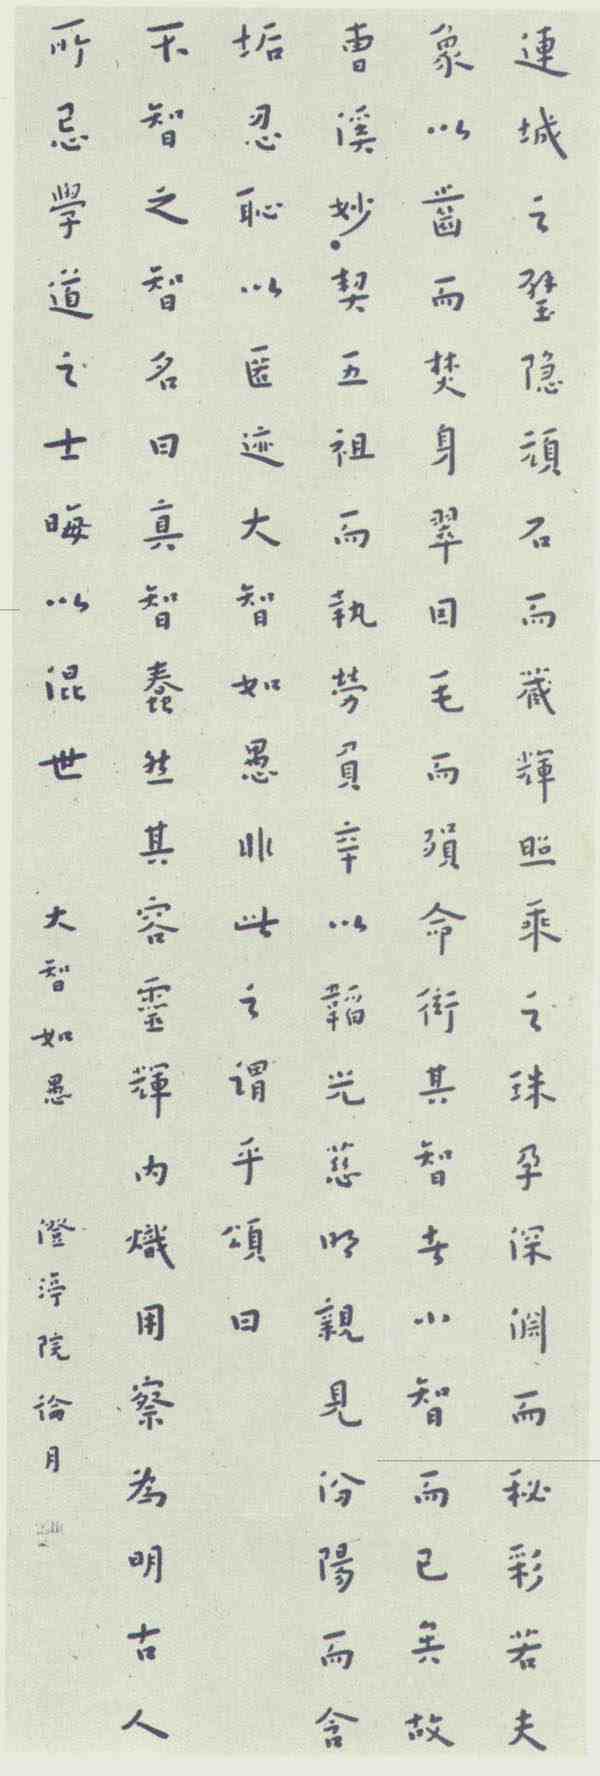 連城之璧隱頑石而藏輝照乘之珠孕深淵而秘彩若夫
象以齒而焚身翠因毛而殞命衒其智者小智而已矣故
曹溪妙契五祖而執勞負辛以韜光慈明親見汾陽而含
垢忍恥以匿迹大智如愚非此之謂乎頌曰
不智之智名曰真智蠢然其容靈輝內熾用察為明古人
所忌學道之士晦以混世
大智如愚
澄渟院論月